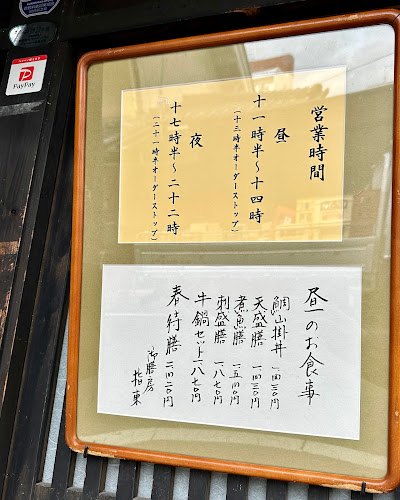 PayPay
営業時間
昼
十一時半～十四時
(十三時半オーダーストップ)
夜
十七時半～二十二時
(二十一時半オーダーストップ)
昼のお食事
鯛山掛丼 一四三〇円
天盛膳 一四三〇円
煮魚膳 一五四〇円
刺盛膳 一八七〇円
牛鍋セット 一八七〇円
春特膳 二四二〇円
御膳房
指東